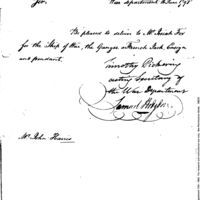 Sir,
War Department
Be pleased to deliver to Mr Josiah Fox
for the Ship of War, the Ganges a French Jack, Ensign
and pendant.
Timothy Pickering
acting Secretary of
the War Department
Samuel Hodgdon
Mr John Harris